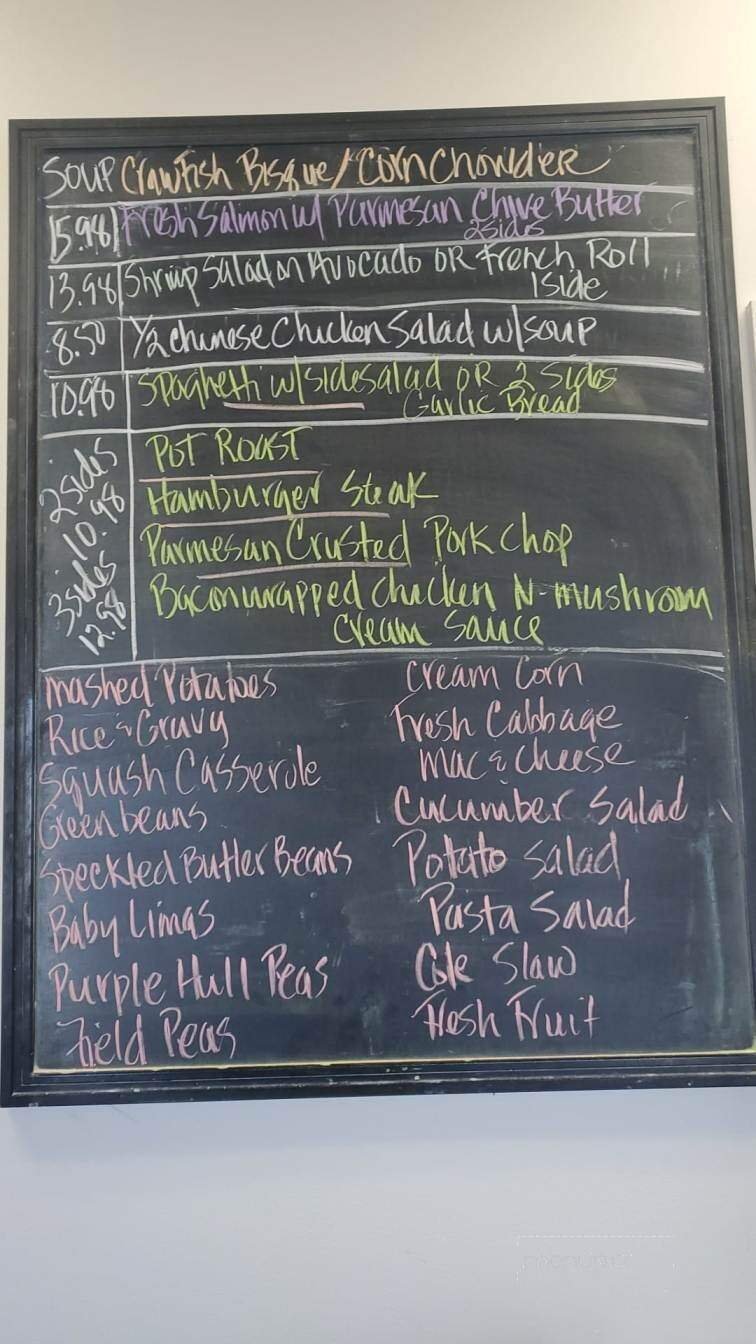 SOUP Crawfish Bisque/Corn Chowder
15.98 Fresh Salmon w/ Parmesan Chive Butter
2 sides
13.98 Shrimp Salad on Avocado OR French Roll
1 side
8.50 1/2 chinese Chicken Salad w/soup
10.98 Spaghetti w/side salad OR 2 sides
Garlic Bread
2 sides 10.98
3 sides 12.98
Pot Roast
Hamburger Steak
Parmesan Crusted Pork chop
Bacon wrapped chicken N-mushroom
Cream Sauce
mashed Potatoes
Rice & Gravy
Squash Casserole
Green beans
Speckled Butter Beans
Baby Limas
Purple Hull Peas
Field Peas
Cream Corn
Fresh Cabbage
Mac & cheese
Cucumber Salad
Potato Salad
Pasta Salad
Cole Slaw
Fresh Fruit